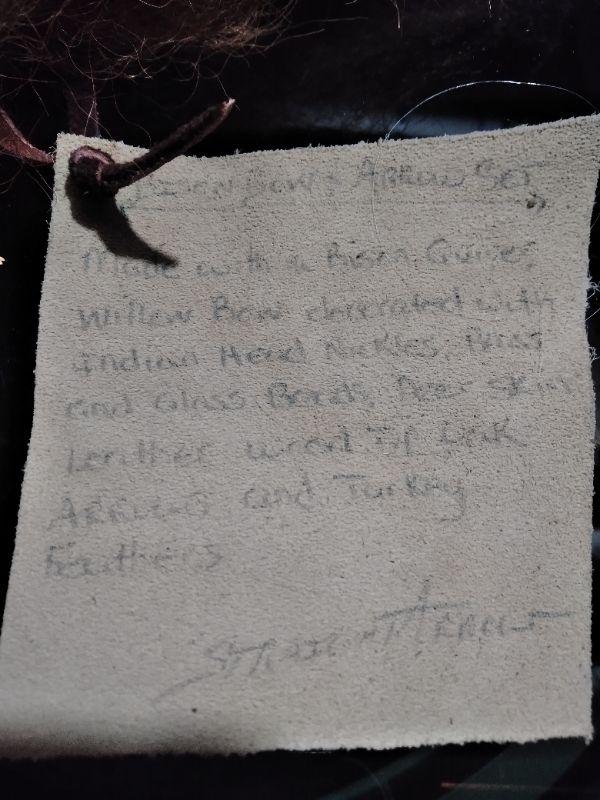 Bow & ARROW SET
Made with a Bison Quiver,
Willow Bow decorated with
Indian Head Nickles, Brass
and Glass Beads, Deer Skin
Leather
ARROWS and Turkey
Feathers